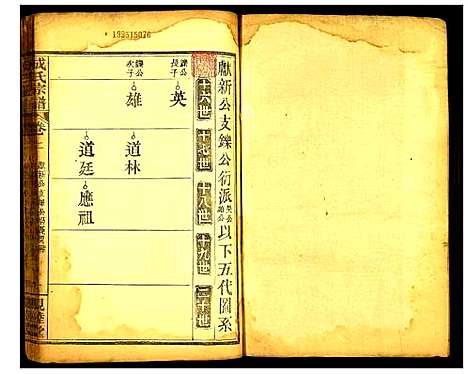 193515076
獻新公支鑠公衍派英公雄公以下五代圖系
十六世
十七世
十八世
十九世
二十世
鑠公長子
英
鑠公次子
雄
道林
道廷
應祖
成氏宗譜
卷二